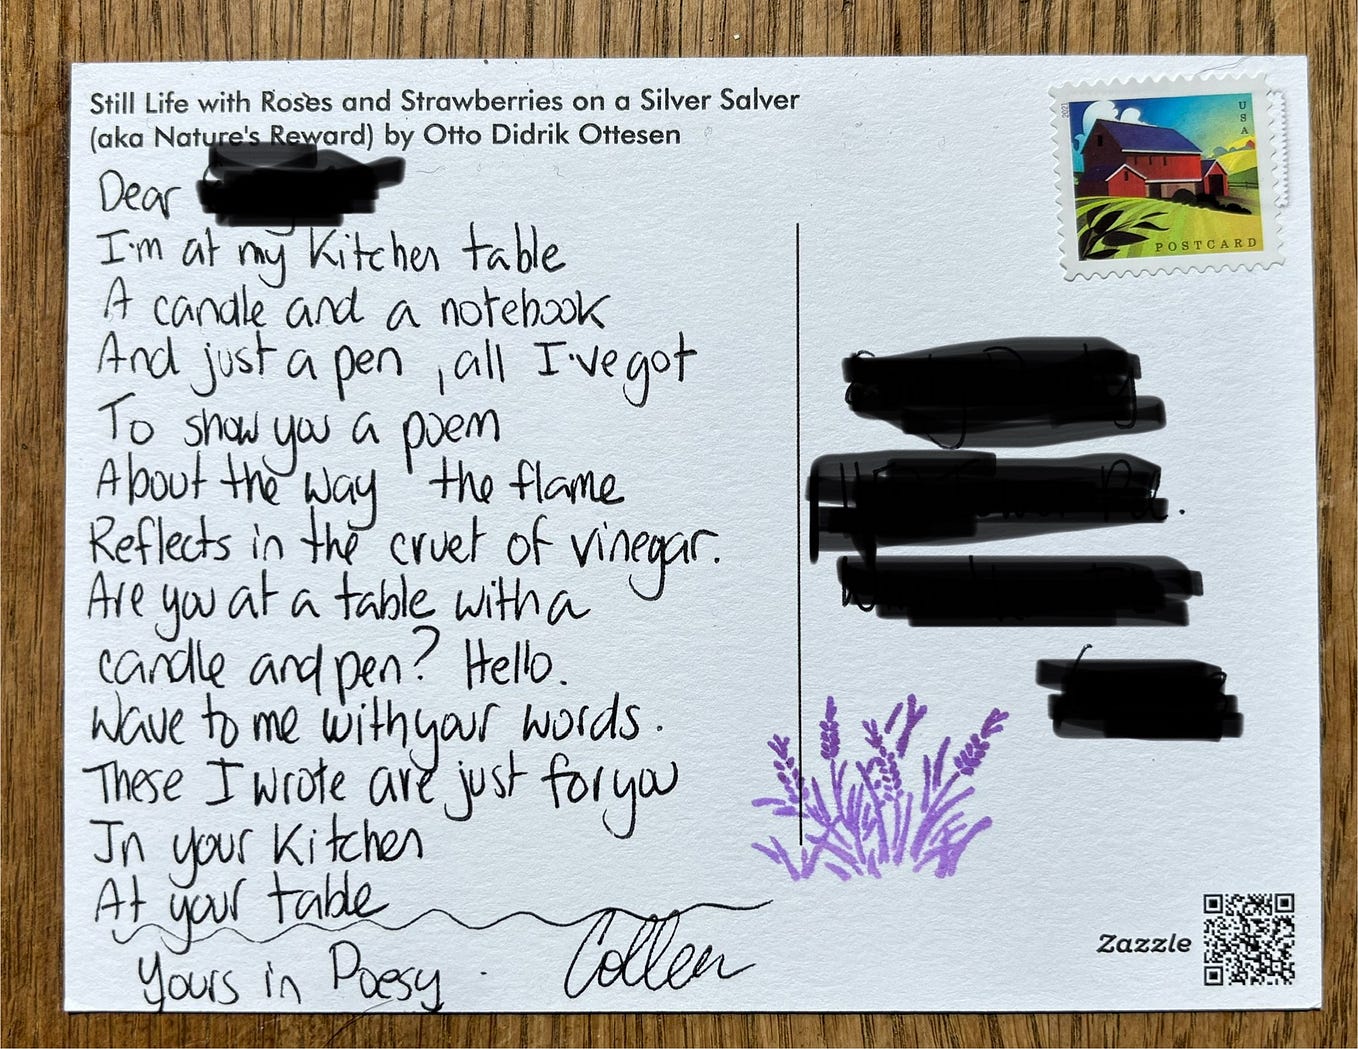 Still Life with Roses and Strawberries on a Silver Salver
(aka Nature's Reward) by Otto Didrik Ottesen
2021
USA
POSTCARD
Dear
I'm at my Kitchen table
A candle and a notebook
And just a pen, all I've got
To show you a poem
About the way the flame
Reflects in the cruet of vinegar.
Are you at a table with a
candle and pen? Hello.
Wave to me with your words.
These I wrote are just for you
In your Kitchen
At your table
Yours in Poesy.
Colleen
Zazzle